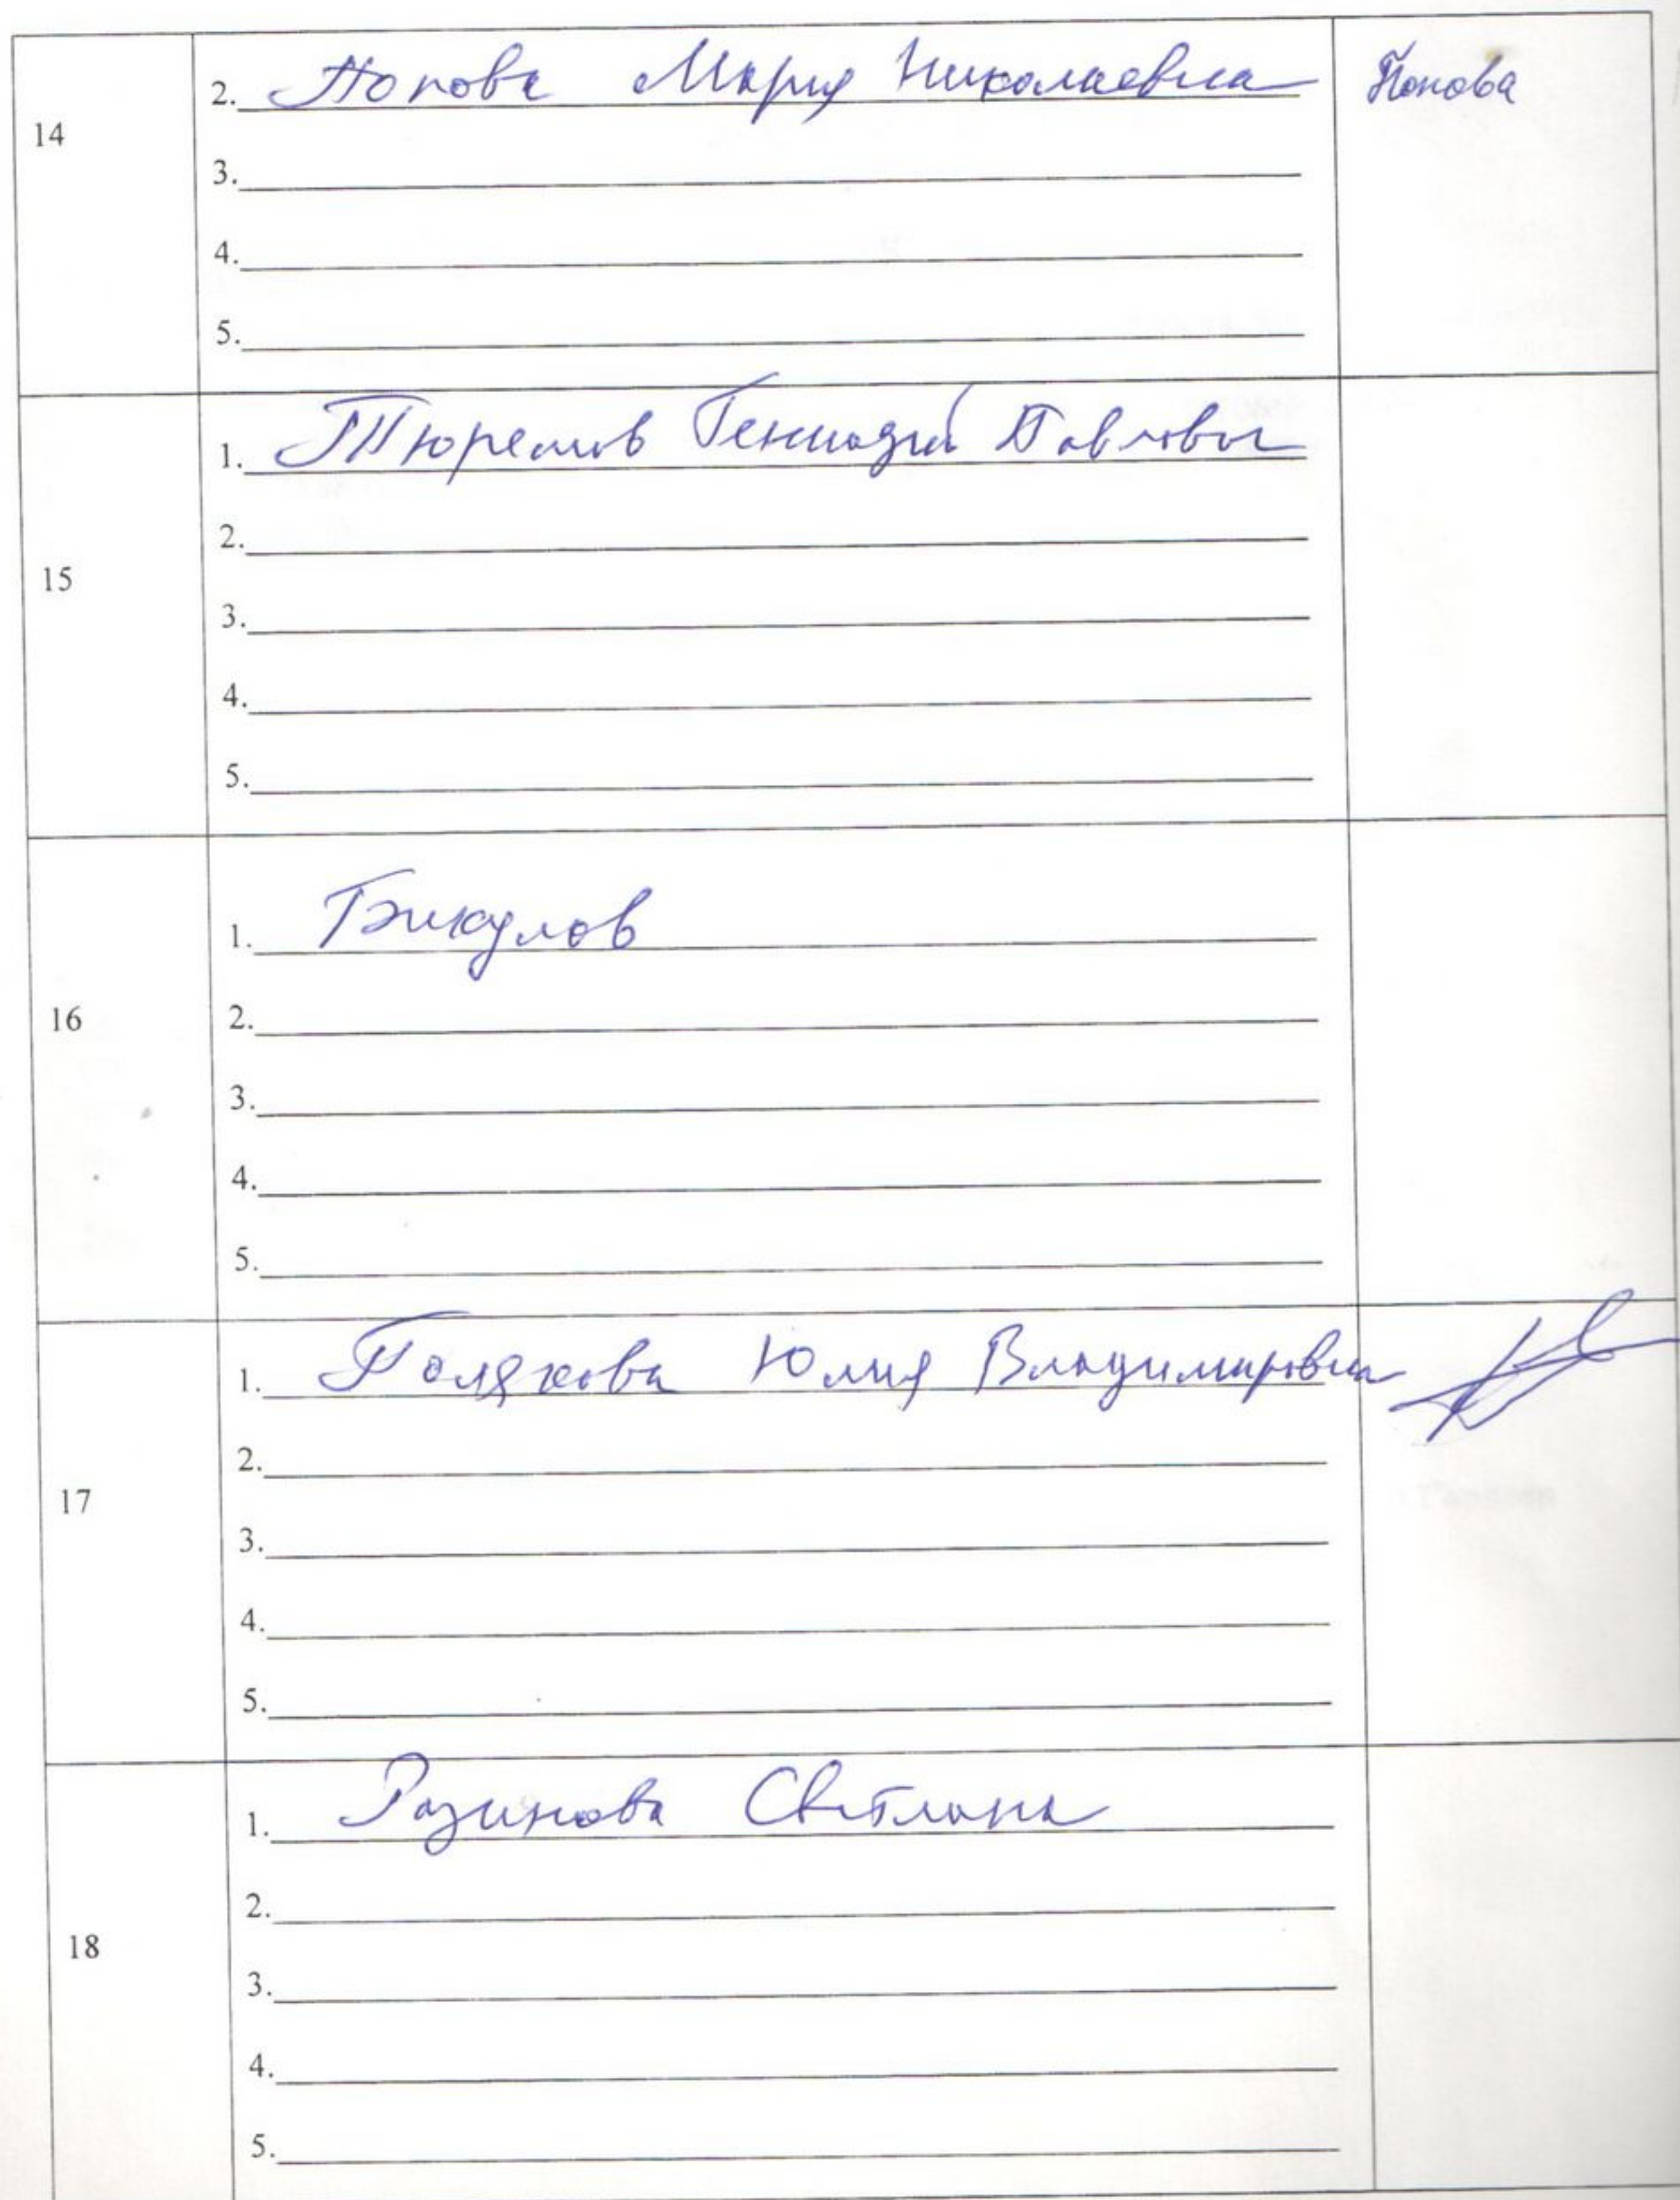 2. Попова Мария Николаевна Попова
14
3.
4.
5.
1. Тюремов Геннадий Павлович
2.
15
3.
4.
5.
1. Бикулов
16
2.
3.
4.
5.
1. Полякова Юлия Владимировна
2.
17
3.
4.
5.
1. Разинова Светлана
2.
18
3.
4.
5.